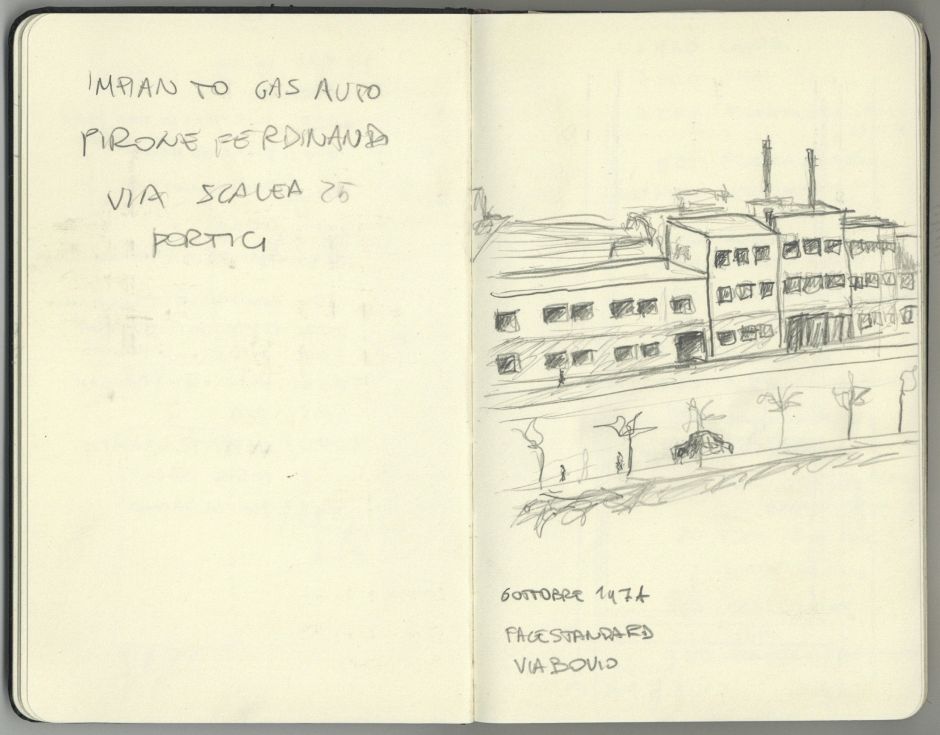 IMPIANTO GAS AUTO
PIRONE FERDINANDO
VIA SCALEA 25
PORTICI
6 OTTOBRE 1974
FACE STANDARD
VIA BOVIO